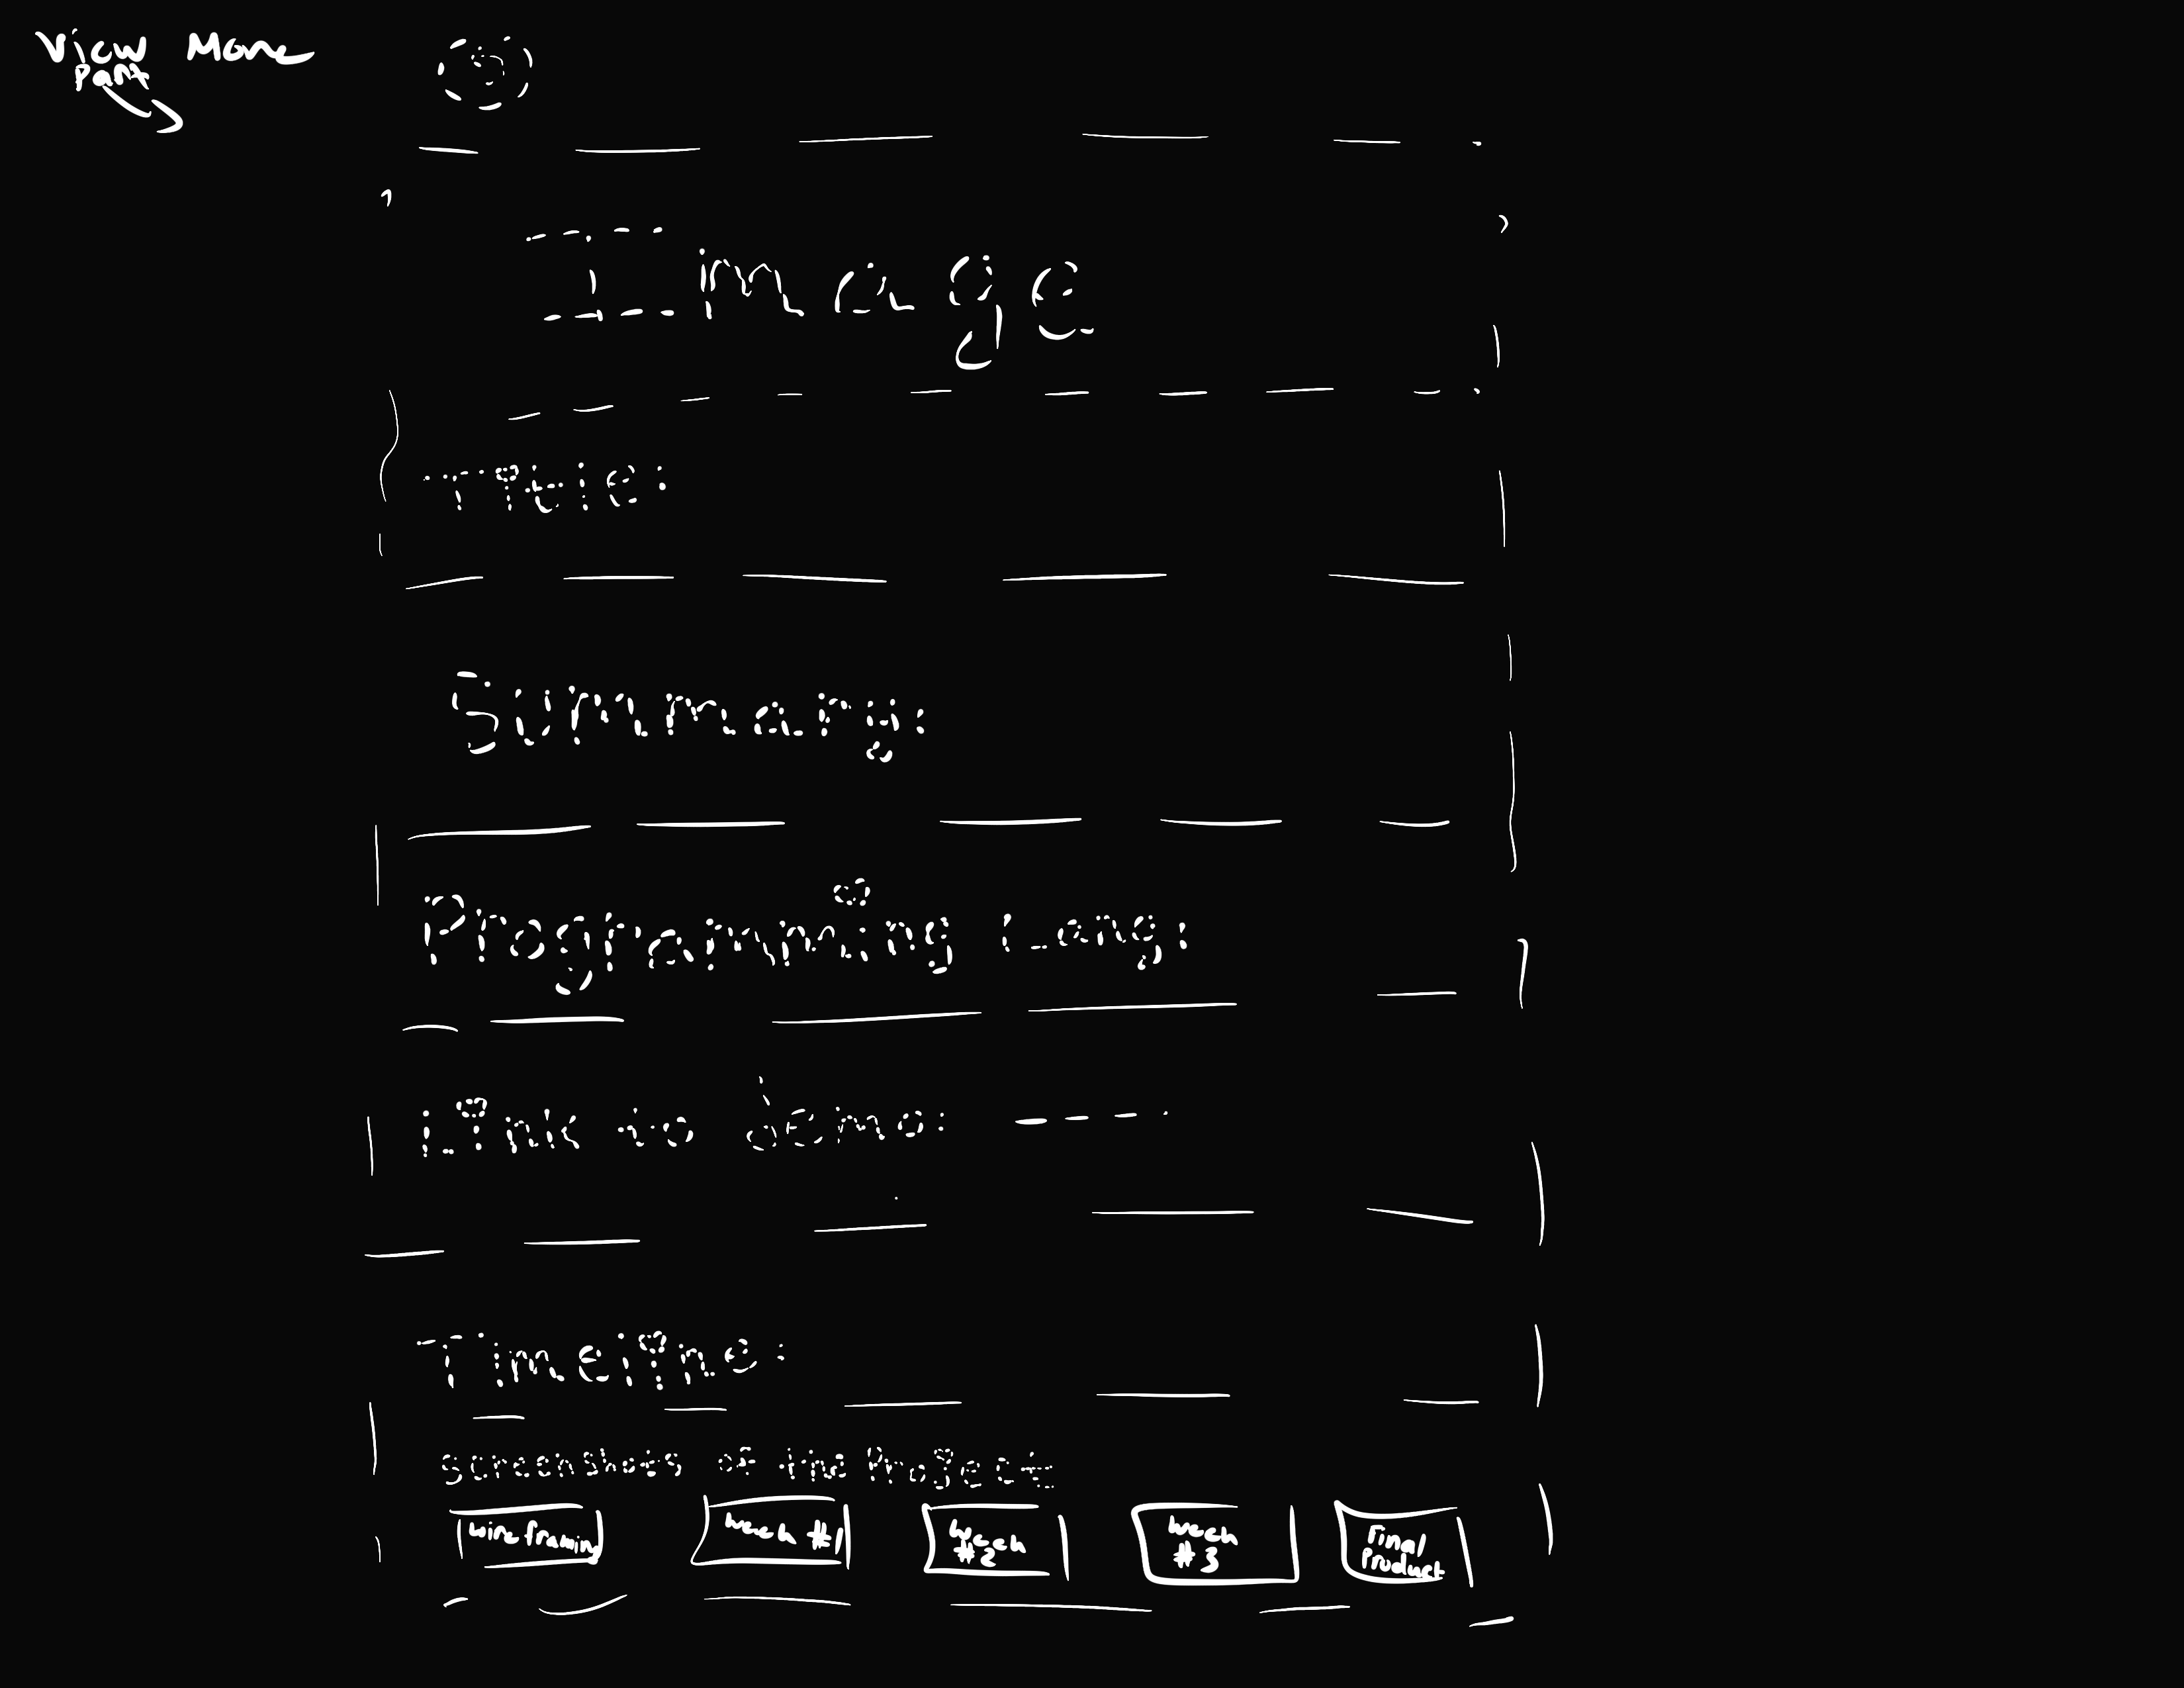 View More
Part
Image
Title:
Summary:
Programming Lang:
Link to demo:
Timeline:
screenshots of the Project:
wire framing
week #1
week
#2
week
#3
Final
Product